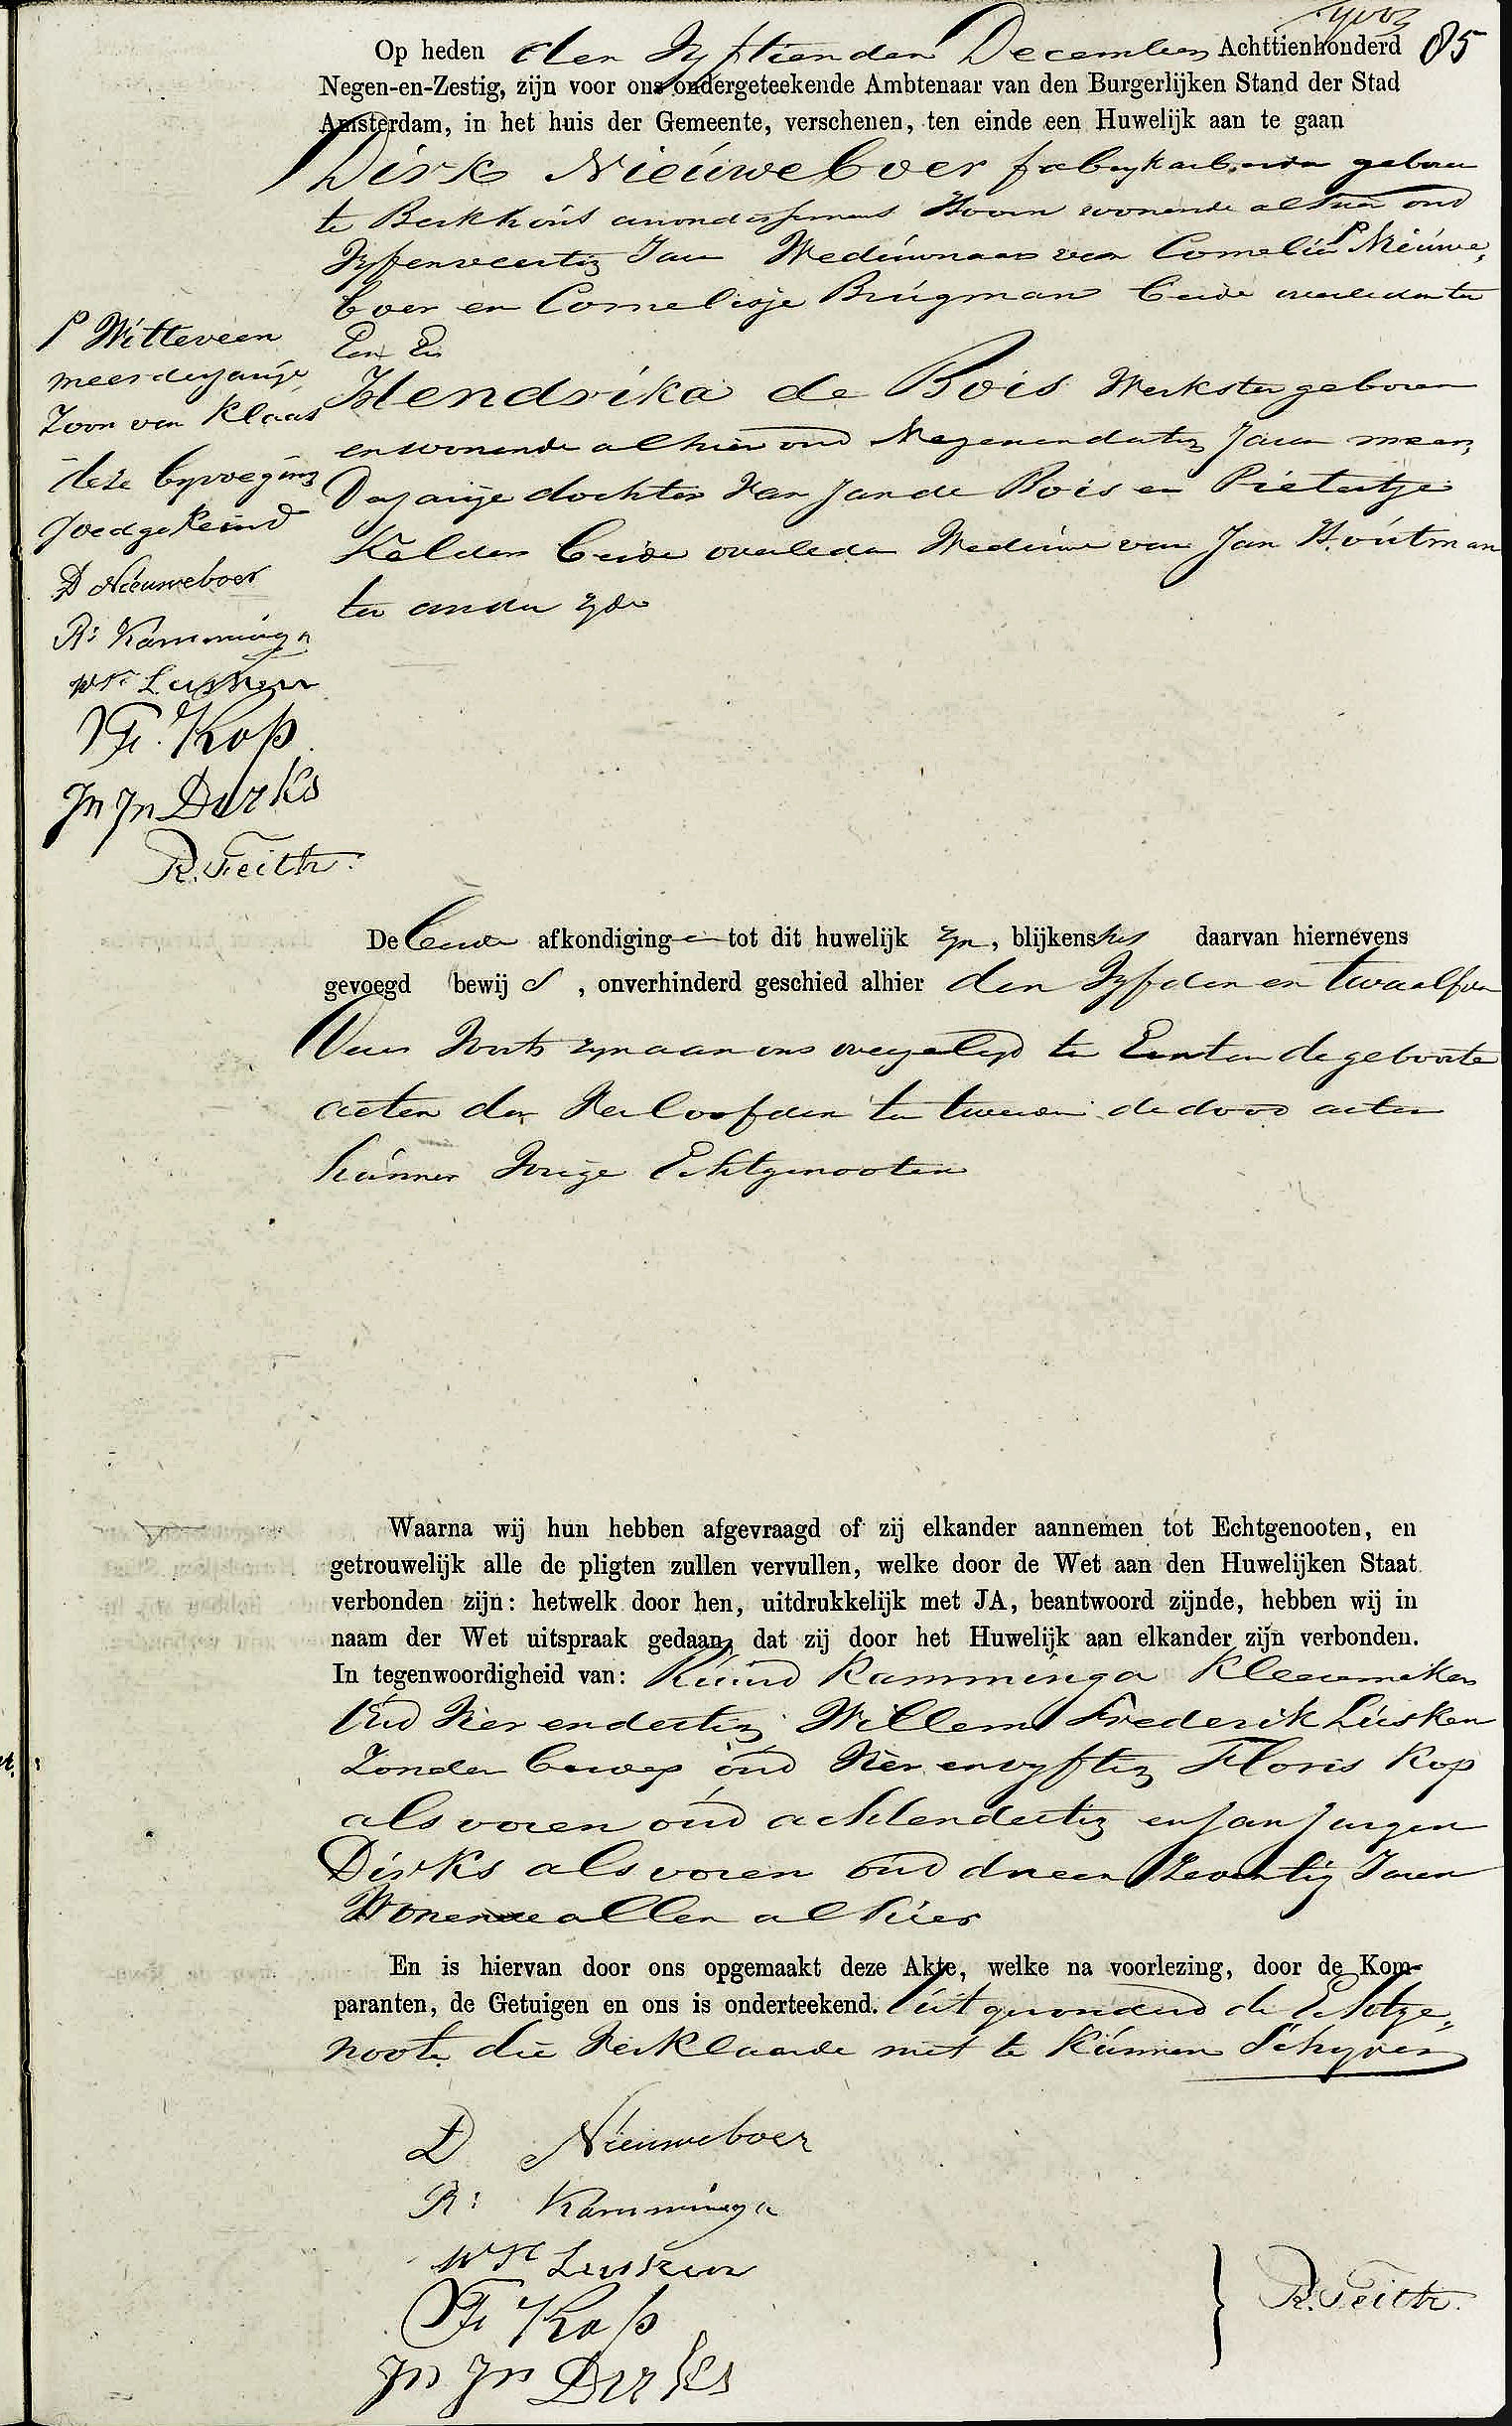 85
Op heden den Vyftienden December Achttienhonderd
Negen-en-Zestig, zijn voor ons ondergeteekende Ambtenaar van den Burgerlijken Stand der Stad
Amsterdam, in het huis der Gemeente, verschenen, ten einde een Huwelijk aan te gaan
Dirk Nieuweboer fabrykarbeider geboren
te Berkhout arrondissement Hoorn wonende alhier oud
Vyfenveertig Jaar Weduwnaar van Cornelis Nieuwe„
boer en Cornelisje Brugman beide overleden ter
Een En
Hendrika de Bois Werkster geboren
en wonende alhier oud Negenendertig Jaren meer„
Derjarige dochter van Jan de Bois en Pietertje
Kelder beide overleden Weduwe van Jan Houtman
ter andere zyde
P Witteveen
meerderjarige
Zoon van Klaas
deze byvoeging
goedgekeurd
D Nieuweboer
R: Kamminga
WF Lusken
F. Kop
Jn Jn Dirks
R. Feith.
De beide afkondigingen tot dit huwelijk zyn, blijkens het daarvan hiernevens
gevoegd bewijs, onverhinderd geschied alhier den Vyfden en twaalfden
Dezer Voorts zyn aan ons overgelegd ten Eersten de geboorte
acten der Verloofden ten tweeden de dood acten
hunner Vorige Echtgenooten
Waarna wij hun hebben afgevraagd of zij elkander aannemen tot Echtgenooten, en
getrouwelijk alle de pligten zullen vervullen, welke door de Wet aan den Huwelijken Staat
verbonden zijn: hetwelk door hen, uitdrukkelijk met JA, beantwoord zijnde, hebben wij in
naam der Wet uitspraak gedaan, dat zij door het Huwelijk aan elkander zijn verbonden.
In tegenwoordigheid van: Ruurd Kamminga Kleermaker
Oud Vierendertig Willem Frederik Lusken
Zonder beroep oud Vierenvyftig Floris Kop
als voren oud achtendertig en Jan Jurgen
Dirks als voren oud drieenZeventig Jaren
Wonende allen alhier
En is hiervan door ons opgemaakt deze Akte, welke na voorlezing, door de Kom-
paranten, de Getuigen en ons is onderteekend. uitgezonderd de Echtge„
noote die Verklaarde niet te kunnen Schryven
D Nieuweboer
R: Kamminga
WF Lusken
F Kop
Jn Jn Dirks
R. Feith.